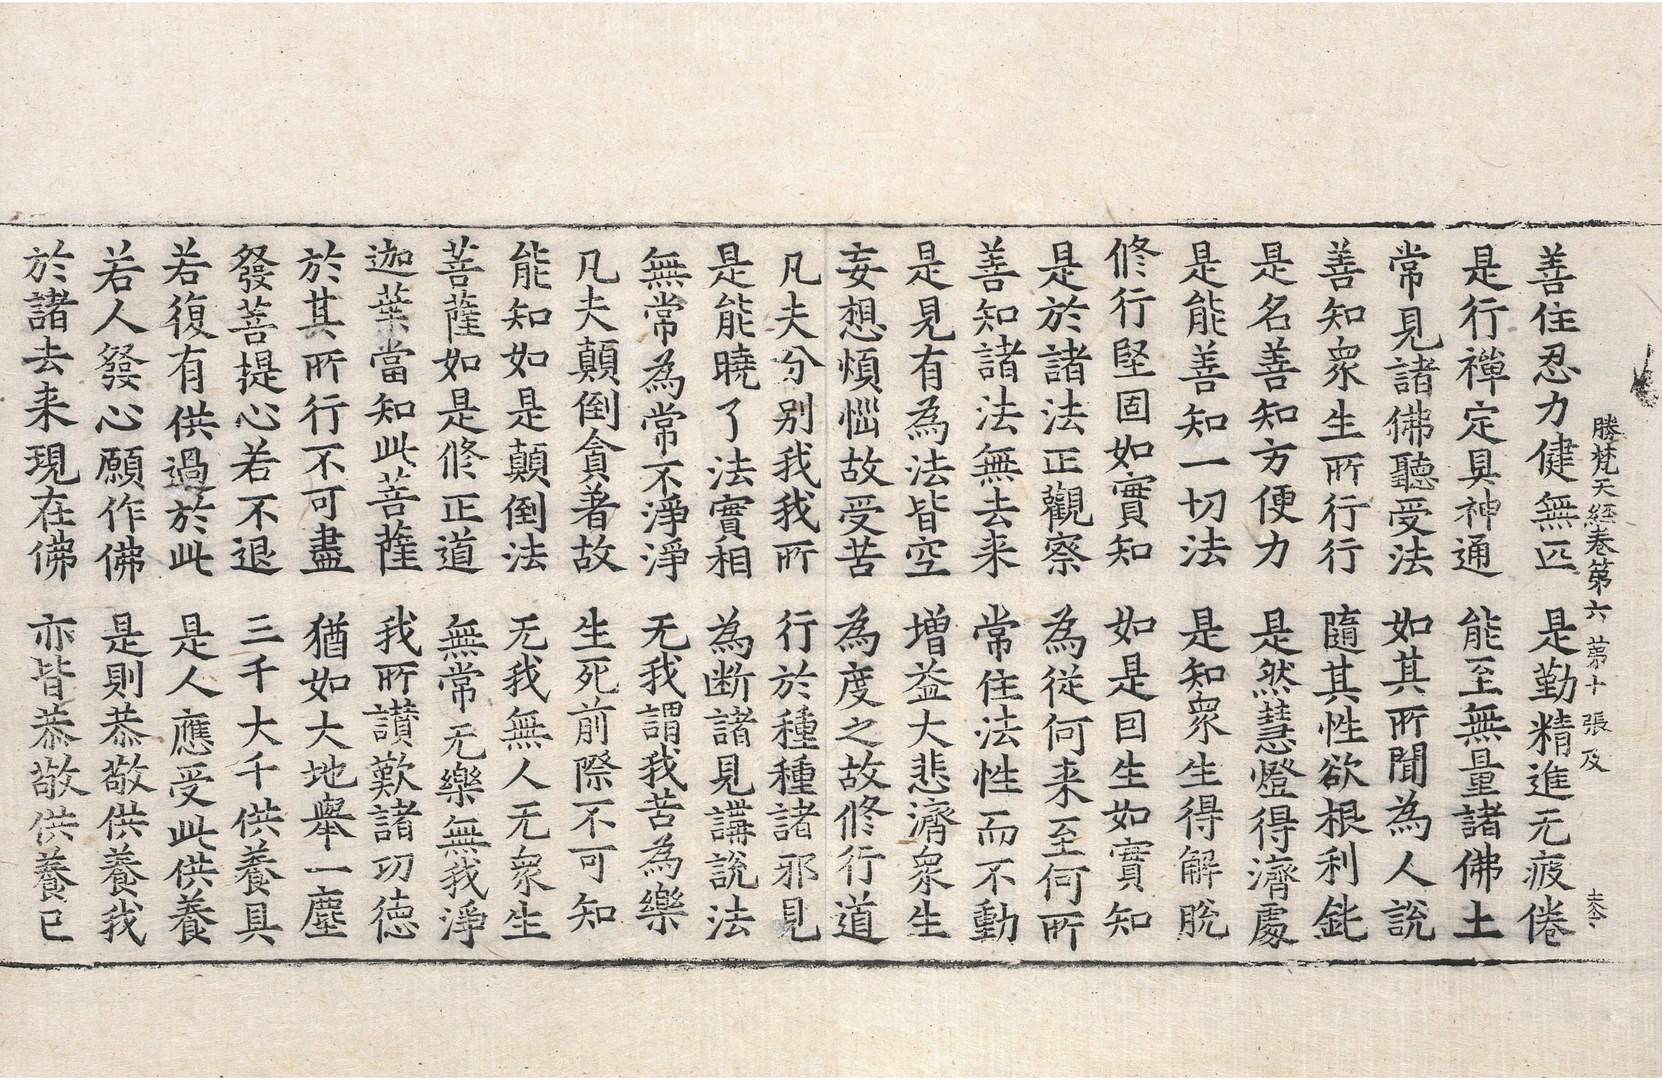 勝梵天經卷第六 第十張 及
善住忍力健無匹 是勤精進无疲倦
是行禪定具神通 能至無量諸佛土
常見諸佛聽受法 如其所聞為人說
善知衆生所行行 隨其性欲根利鈍
是名善知方便力 是然慧燈得濟處
是能善知一切法 是知衆生得解脫
修行堅固如實知 如是因生如實知
是於諸法正觀察 為從何来至何所
善知諸法無去来 常住法性而不動
是見有為法皆空 增益大悲濟衆生
妄想煩惱故受苦 為度之故修行道
凡夫分别我我所 行於種種諸邪見
是能曉了法實相 為断諸見講說法
無常為常不淨淨 无我謂我苦為樂
凡夫顛倒貪著故 生死前際不可知
能知如是顛倒法 无我無人无衆生
菩薩如是修正道 無常无樂無我淨
迦葉當知此菩薩 我所讃歎諸功徳
於其所行不可盡 猶如大地舉一塵
發菩提心若不退 三千大千供養具
若復有供過於此 是人應受此供養
若人發心願作佛 是則恭敬供養我
於諸去来現在佛 亦皆恭敬供養已